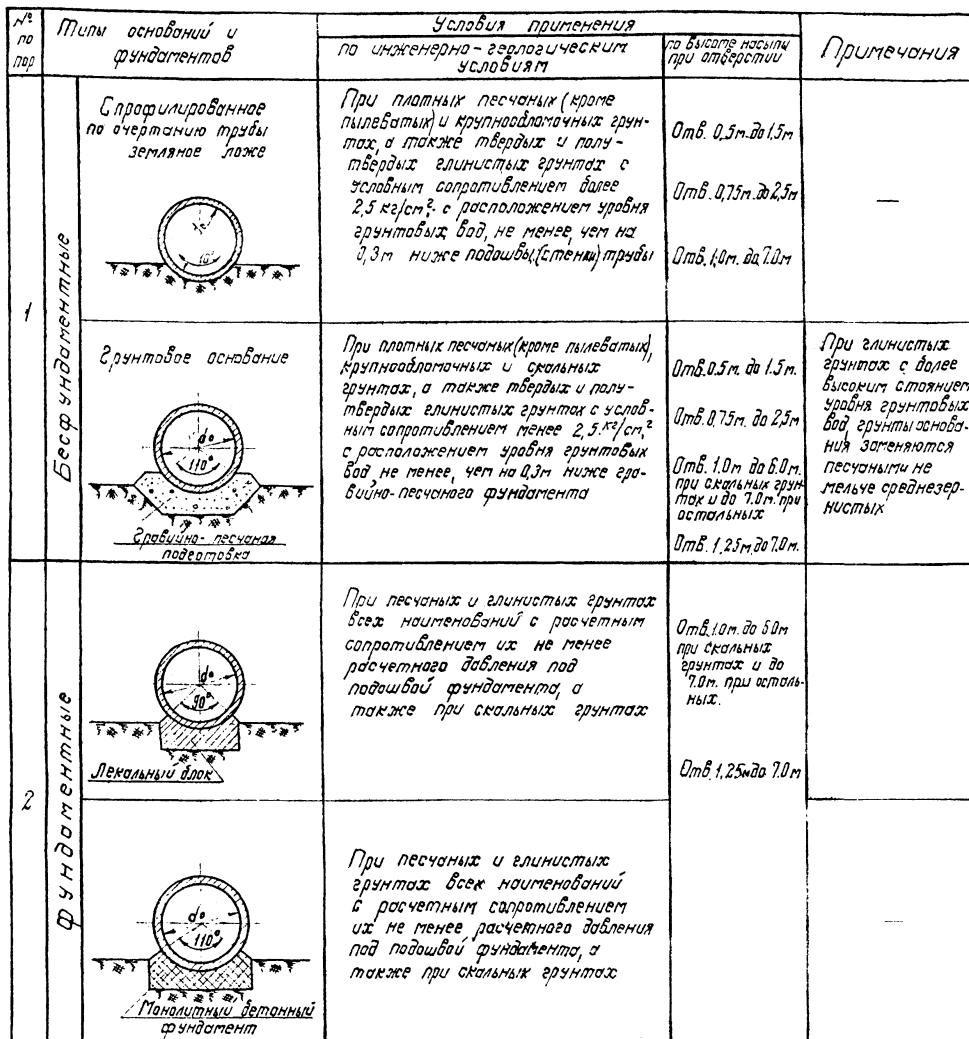 № по пор
Типы оснований и
фундаментов
Условия применения
по инженерно-геологическим
условиям
по высоте насыпи
при отверстии
Примечания
1
Бесфундаментные
Спрофилированное
по очертанию трубы
земляное ложе
При плотных песчаных (кроме
пылеватых) и крупнообломочных грун-
тах, а также твердых и полу-
твердых глинистых грунтах с
условным сопротивлением более
2,5 кг/см², с расположением уровня
грунтовых вод, не менее, чем на
0,3м ниже подошвы (стенки) трубы
Отв. 0,5м. до 1,5м
Отв. 0,75м. до 2,5м
Отв. 1,0м. до 7.0м
—
Грунтовое основание
d°
110°
Гравийно-песчаная
подготовка
При плотных песчаных (кроме пылеватых),
крупнообломочных и скальных
грунтах, а также твердых и полу-
твердых глинистых грунтах с услов-
ным сопротивлением менее 2,5 кг/см²
с расположением уровня грунтовых
вод не менее, чем на 0,3м ниже гра-
вийно-песчаного фундамента
Отв. 0.5м. до 1.5м.
Отв. 0.75м. до 2,5м
Отв. 1.0м до 6.0м.
при скальных грун-
тах и до 7.0м. при
остальных
Отв. 1,25м до 7.0м.
При глинистых
грунтах с более
высоким стоянием
уровня грунтовых
вод, грунты основа-
ния заменяются
песчаными не
мельче среднезер-
нистых
2
Фундаментные
d°
90°
Лекальный блок
При песчаных и глинистых грунтах
всех наименований с расчетным
сопротивлением их не менее
расчетного давления под
подошвой фундамента, а
также при скальных грунтах
Отв. 1.0м. до 6.0м
при скальных
грунтах и до
7.0м. при осталь-
ных.
Отв. 1,25м до 7.0м
d°
110°
Монолитный бетонный
фундамент
При песчаных и глинистых
грунтах всех наименований
с расчетным сопротивлением
их не менее расчетного давления
под подошвой фундамента, а
также при скальных грунтах
—